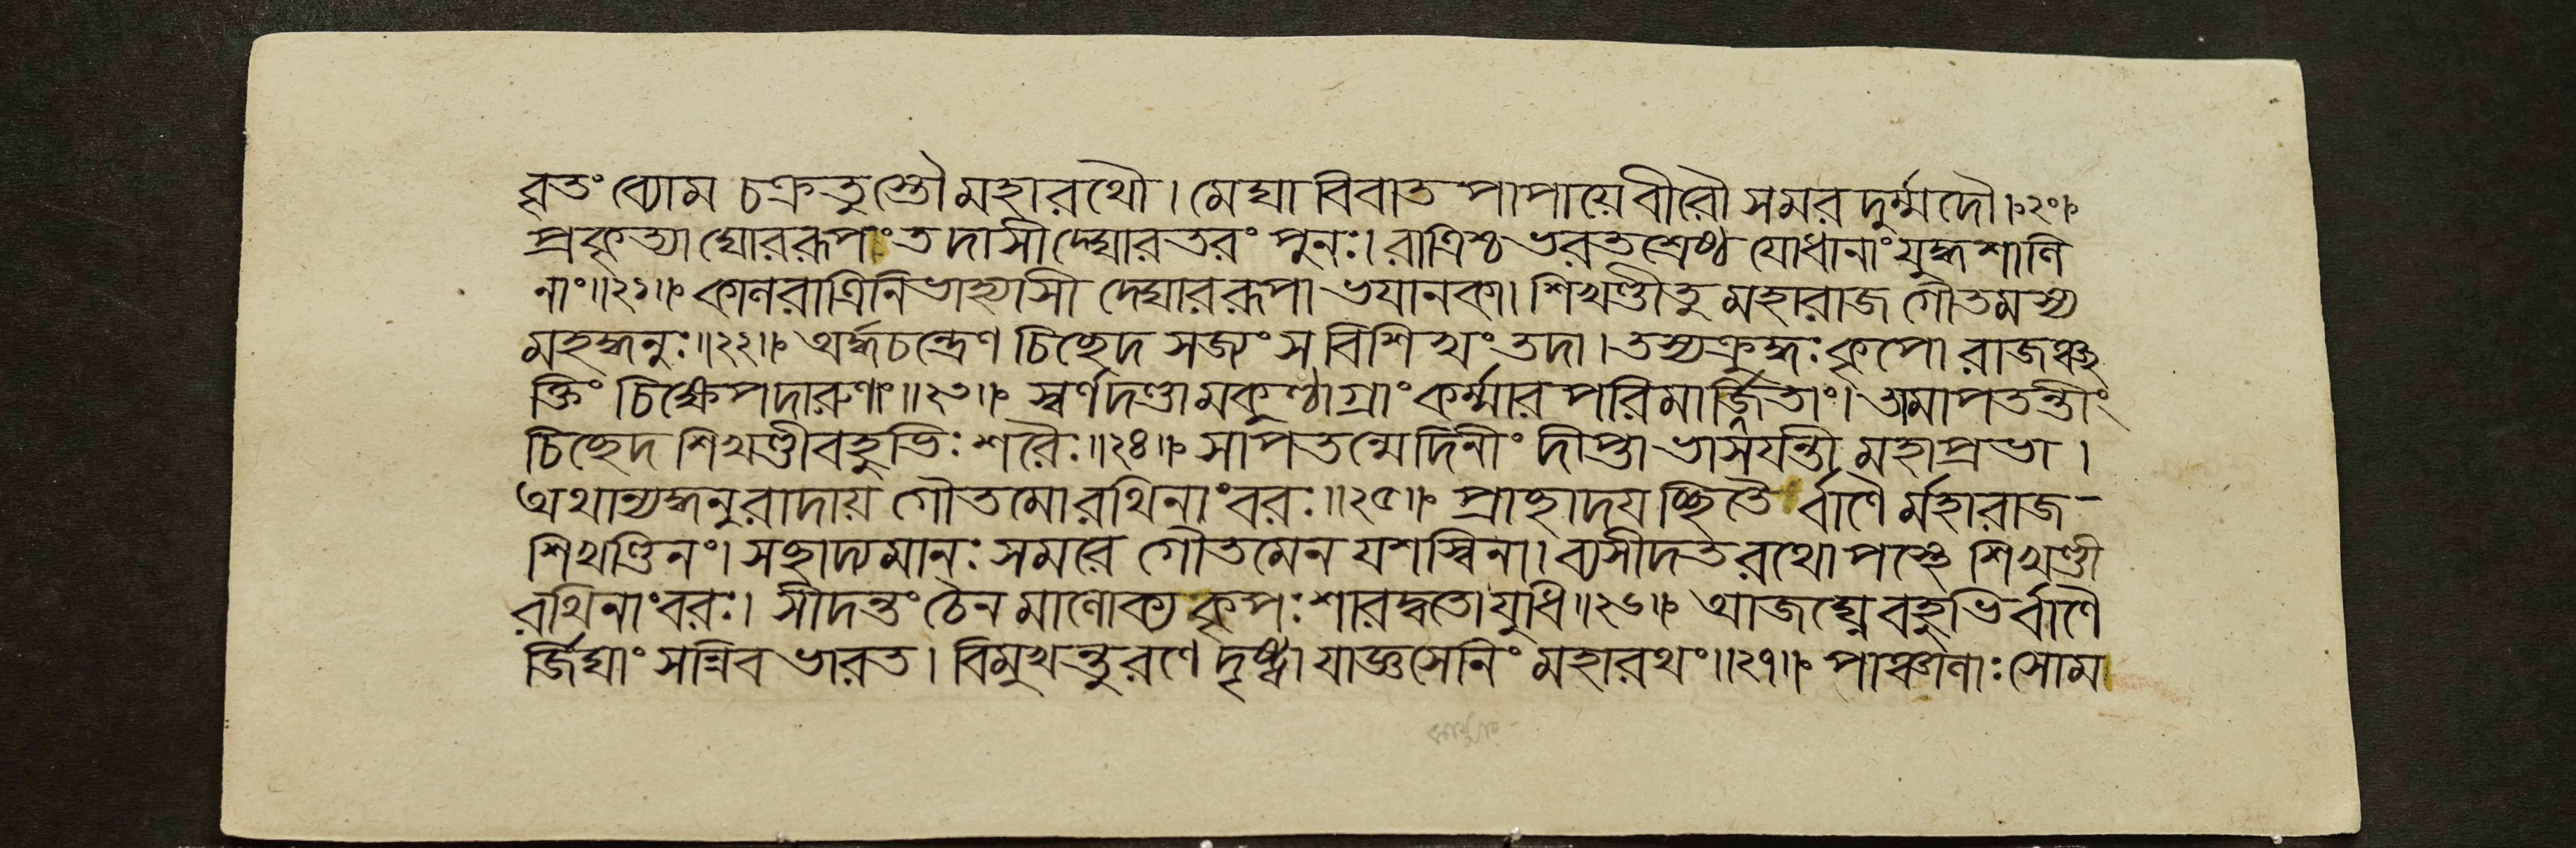 বৃতং ব্যোম চক্রতুস্তৌ মহারথৌ। মেঘাবিবাতপাপায়ে বীরৌ সমরদুর্ম্মদৌ॥২০॥
প্রকৃত্যা ঘোররূপং তদাসীদ্ঘোরতরং পুনঃ। রাত্রিশ্চ ভরতশ্রেষ্ঠ যোধানাং যুদ্ধশালি
নাং॥২১॥ কালরাত্রিনিভাহ্যাসীদ্ঘোররূপা ভযানকা। শিখণ্ডী তু মহারাজ গৌতমস্য
মহদ্ধনুঃ॥২২॥ অর্দ্ধচন্দ্রেণ চিচ্ছেদ সজ্যং সবিশিখং তদা। তস্য ক্রুদ্ধঃ কৃপো রাজঞ্ছ
ক্তিং চিক্ষেপ দারুণাং॥২৩॥ স্বর্ণদণ্ডামকুণ্ঠাগ্রাং কর্ম্মারপরিমার্জ্জিতাং। তামাপতন্তীং
চিচ্ছেদ শিখণ্ডী বহুভিঃ শরৈঃ॥২৪॥ সাপতন্মেদিনীং দীপ্তা ভাসযন্তী মহাপ্রভা।
অথান্যদ্ধনুরাদায় গৌতমো রথিনাং বরঃ॥২৫॥ প্রাচ্ছাদযচ্ছিতৈর্বাণৈর্মহারাজ-
শিখণ্ডিনং। সচ্ছাদ্যমানঃ সমরে গৌতমেন যশস্বিনা। ব্যসীদত রথোপস্থে শিখণ্ডী
রথিনাং বরঃ। সীদন্তং চৈনমালোক্য কৃপঃ শারদ্বতো যুধি॥২৬॥ আজঘ্নে বহুভির্বাণৈ
র্জিঘাংসন্নিব ভারত। বিমুখন্তু রণে দৃষ্ট্বা যাজ্ঞসেনিং মহারথং॥২৭॥ পাঞ্চালাঃ সোম